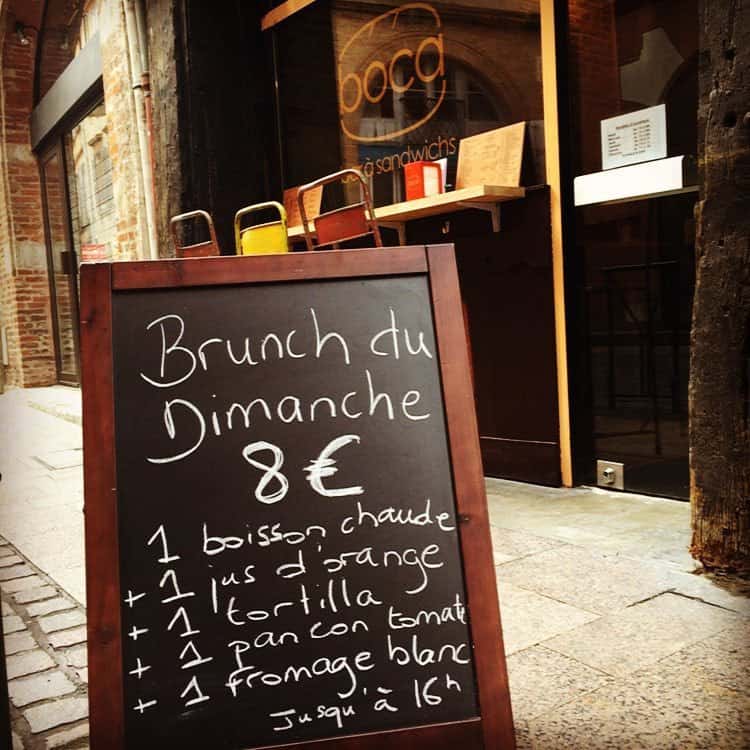 boca
à sandwichs
Brunch du
Dimanche
8€
1 boisson chaude
+ 1 jus d'orange
+ 1 tortilla
+ 1 pan con tomate
+ 1 fromage blanc
Jusqu'à 16h